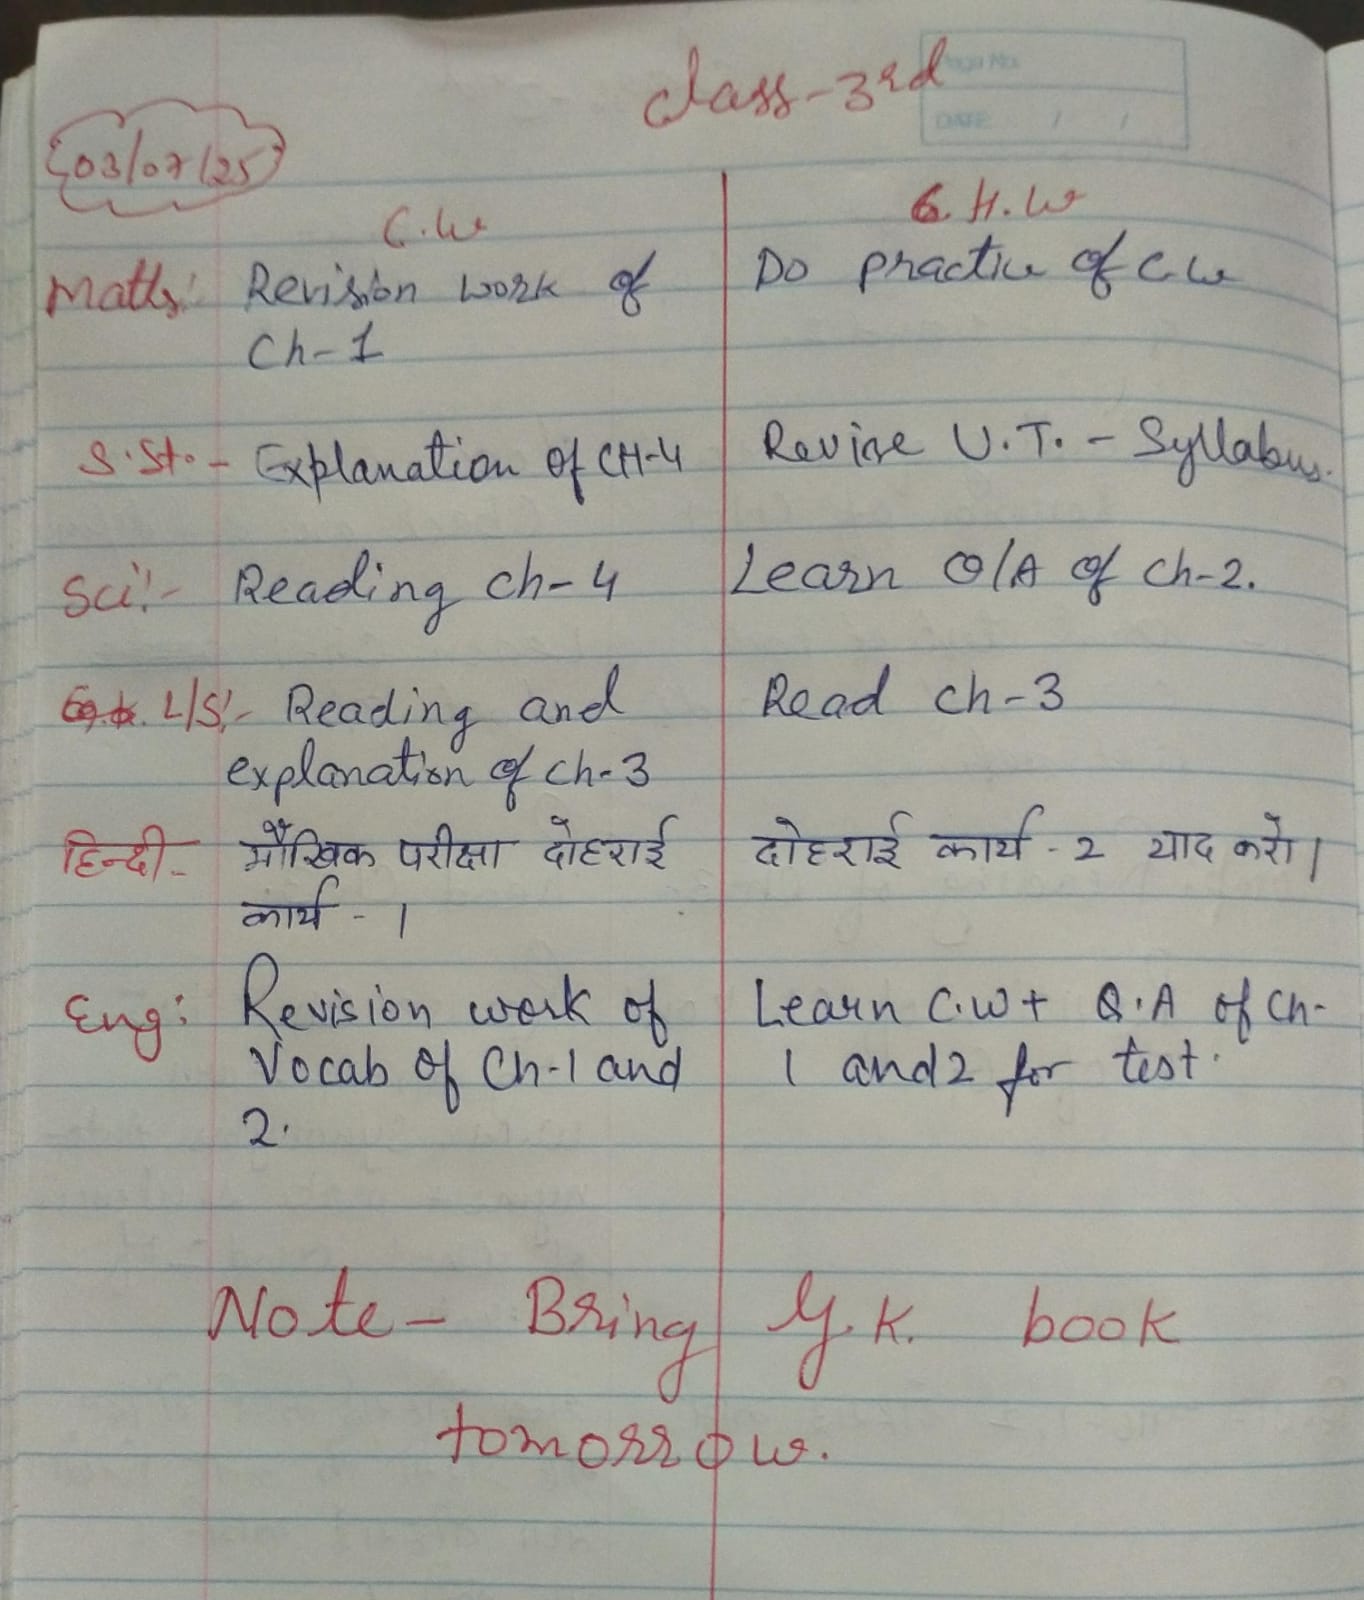 Class-3rd
Page No.
DATE / /
03/07/25
C.W
H.W
Maths: Revision work of
Ch-1
Do practice of C.W
S.St. - Explanation of CH-4
Revise U.T. - Syllabus.
Sci:- Reading ch-4
Learn Q/A of ch-2.
L/S:- Reading and
explanation of ch-3
Read ch-3
हिन्दी- मौखिक परीक्षा दोहराई
कार्य - 1
दोहराई कार्य - 2 याद करो।
Eng: Revision work of
Vocab of Ch-1 and
2.
Learn C.W + Q.A of Ch-
1 and 2 for test.
Note- Bring G.K. book
tomorrow.